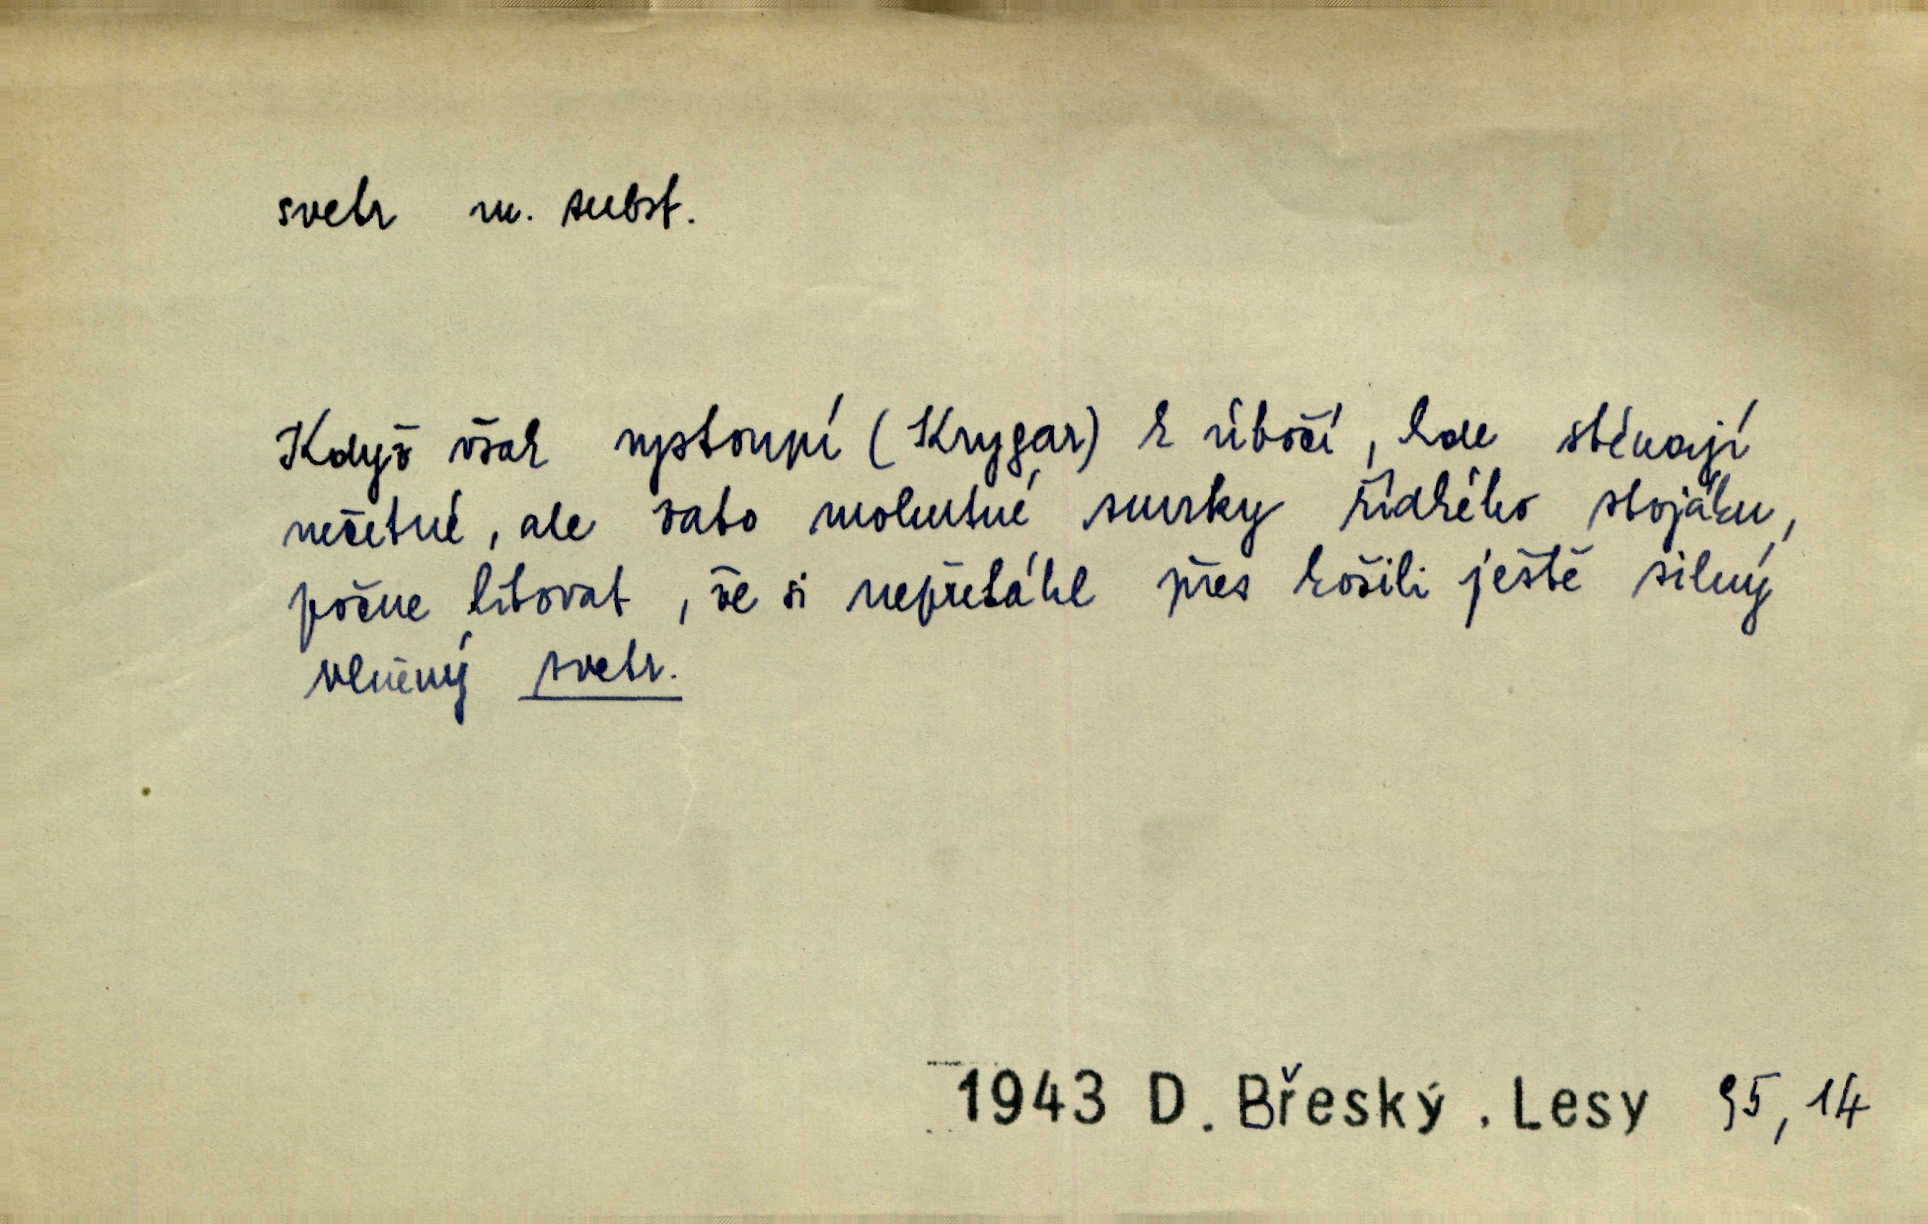 svetr m. subst.
Když však vystoupí (Krygar) k úbočí, kde sténají
nečetné, ale zato mohutné smrky řídkého stojáku,
počne litovat, že si nepřetáhl přes košili ještě silný
vlněný svetr.
1943 D. Břeský. Lesy 95, 14